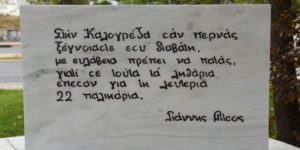 Στήν Καλογρέζα εάν περνάς
ξέγνοιαστε εσύ διαβάτη,
με ευλάβεια πρέπει να πατάς,
γιατί σε τούτα τα λιθάρια
έπεσαν για τη λευτεριά
22 παλικάρια.
Γιάννης Ρίτσος